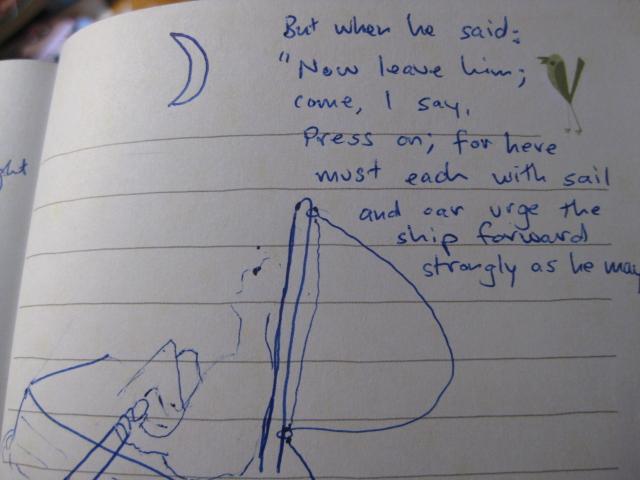 But when he said:
"Now leave him;
come, I say,
Press on; for here
must each with sail
and oar urge the
ship forward
strongly as he may
ght